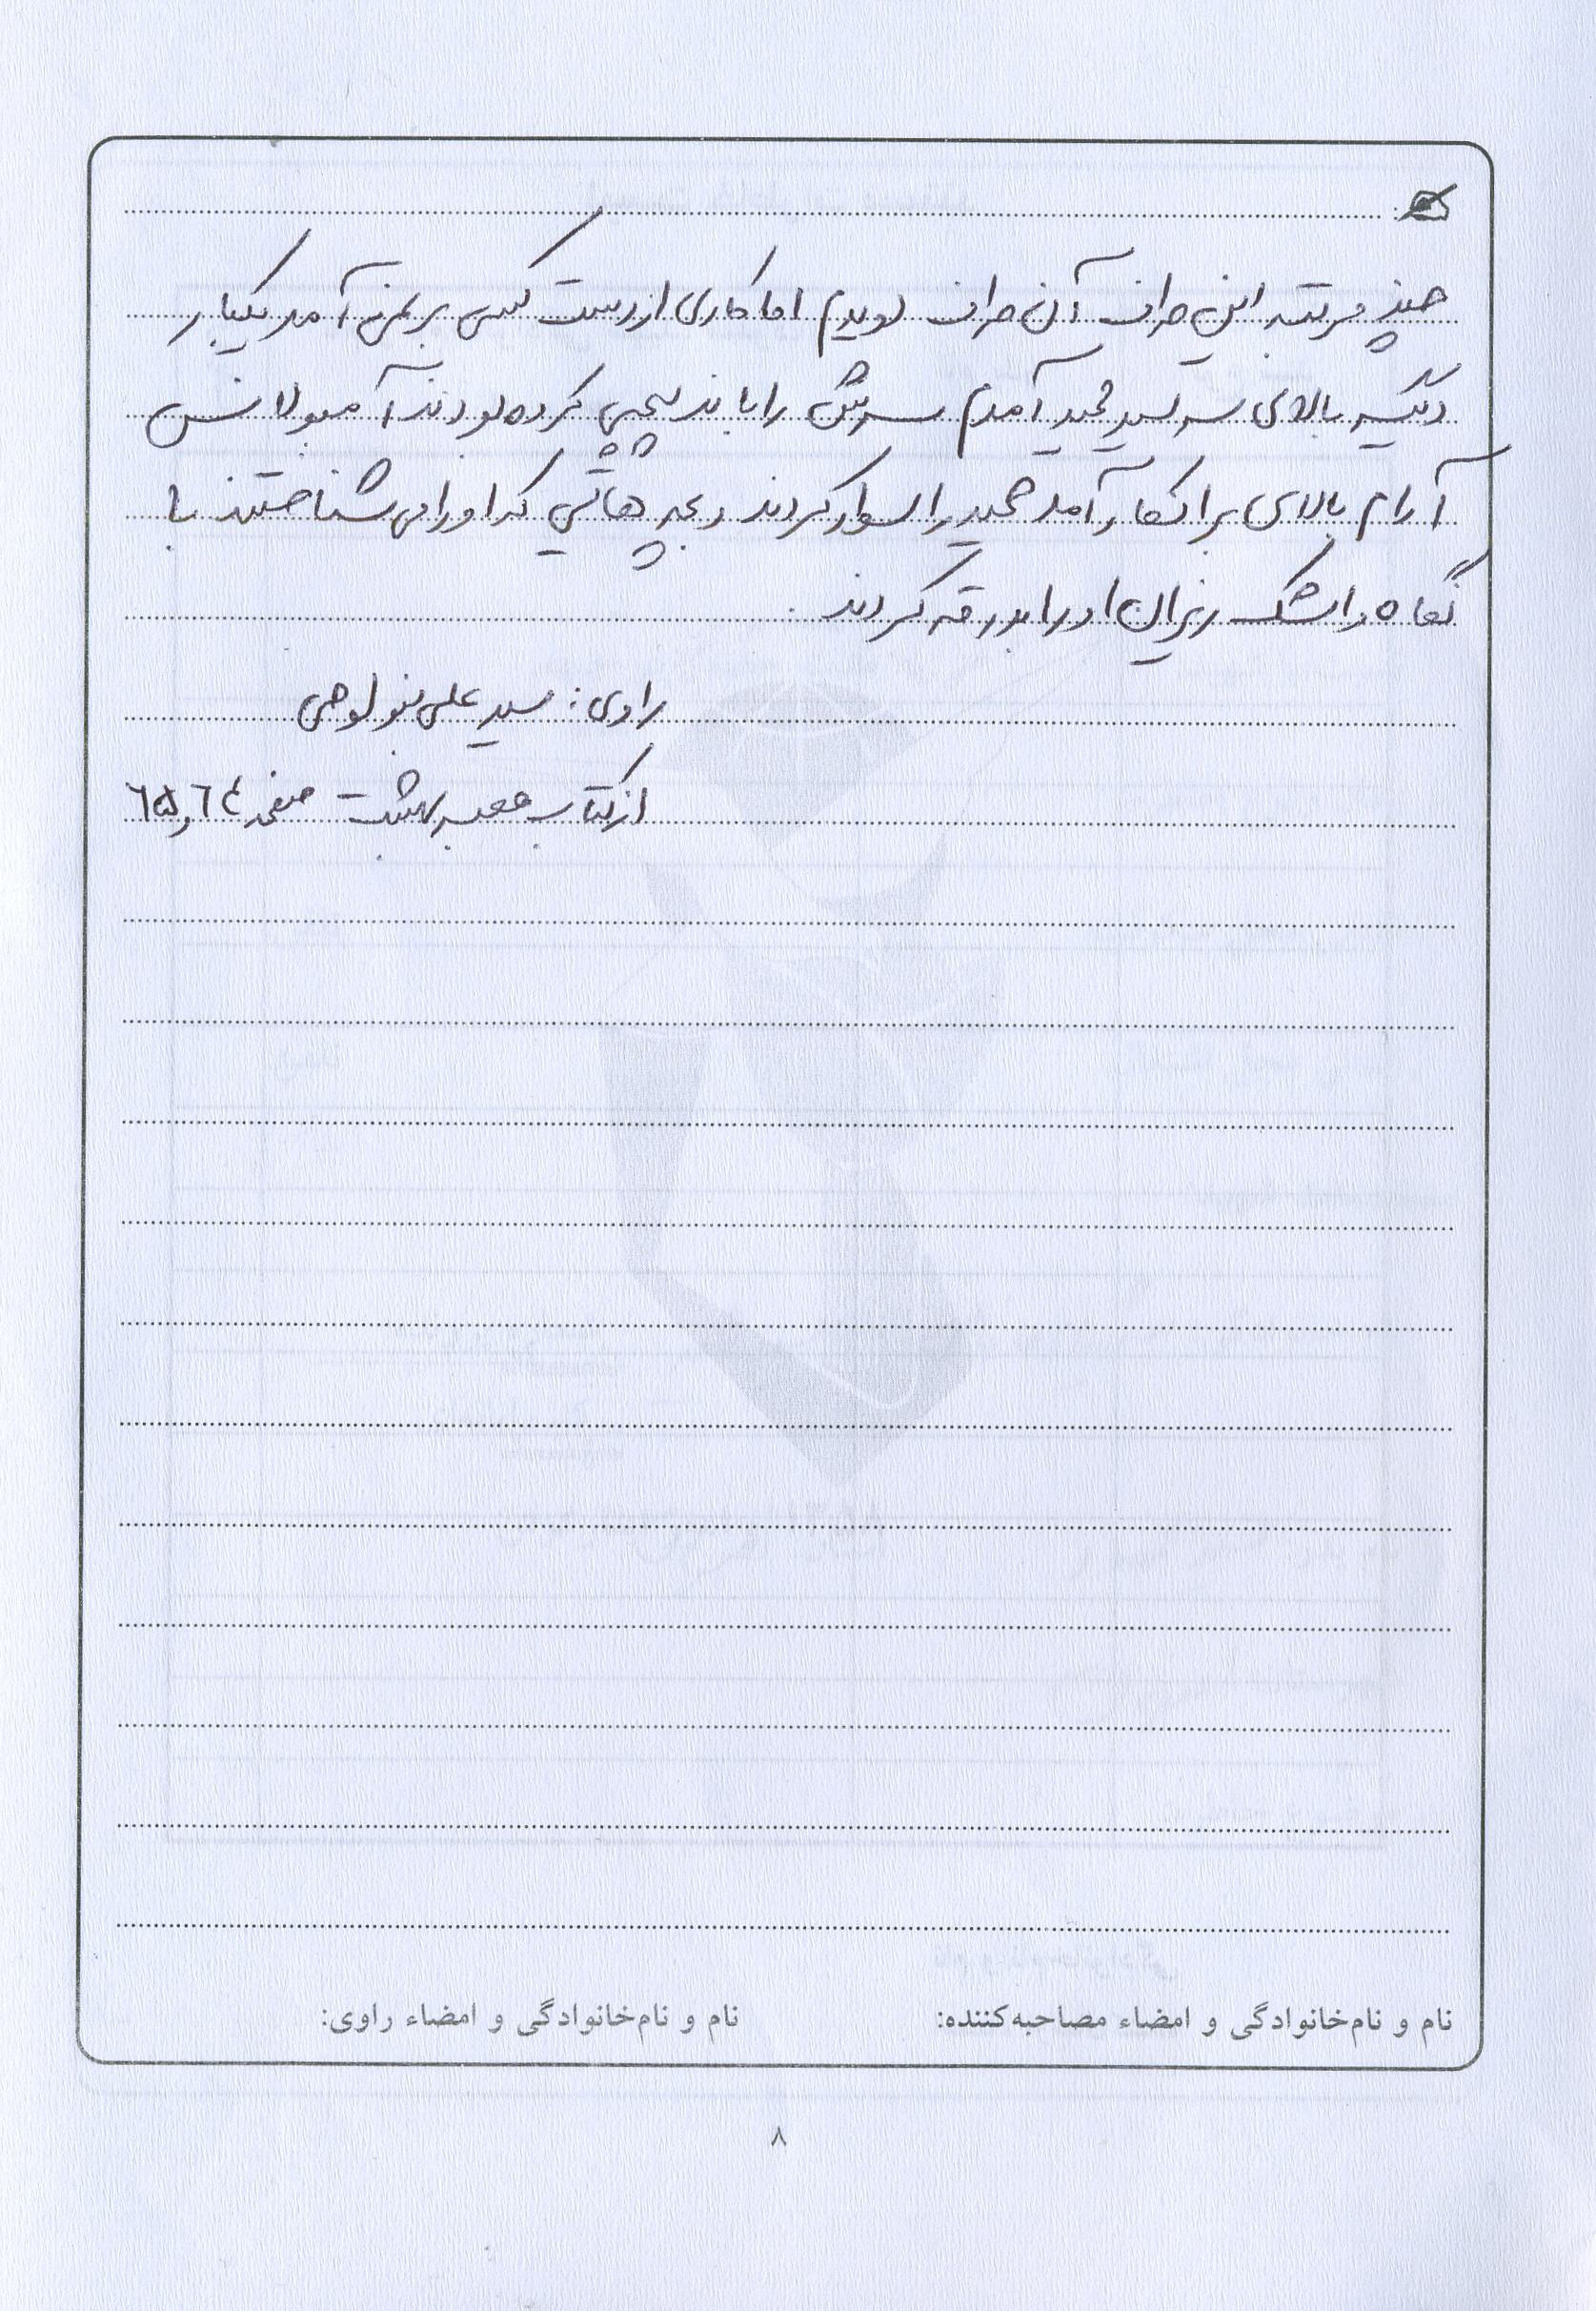 چند مرتبه این طرف آن طرف دویدم اما کاری از دست کسی بر نمی آمد یکبار
دیگر بالای سر سید حمید آمدم سرش را باند پیچی کرده بودند آمبولانس
آرام بالای برانکار آمد حمید را سوار کردند و بچه هائی که او را می شناختند با
نگاه و اشک ریزان او را بدرقه کردند.
راوی: سید علی
از کتاب جعبه بهشت صفحه ٦٤ و ٦٥
نام و نام‌خانوادگی و امضاء مصاحبه‌کننده: نام و نام‌خانوادگی و امضاء راوی:
۸